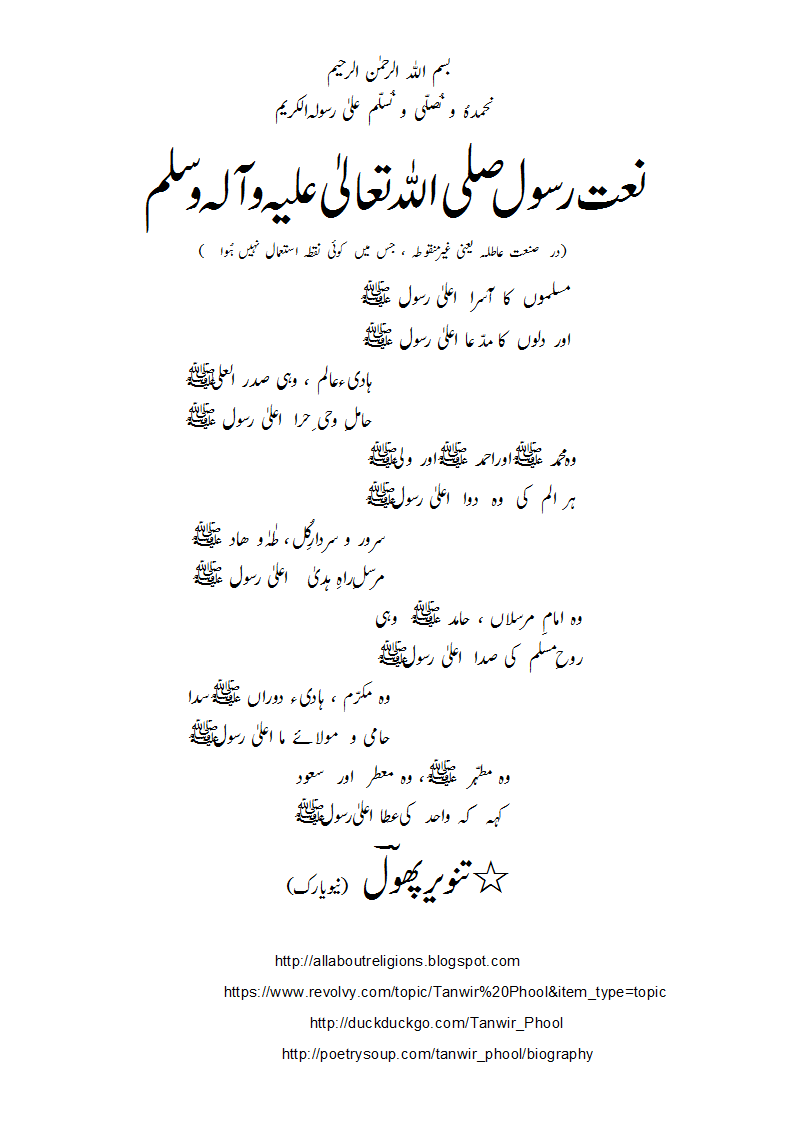 بسم اللہ الرحمٰن الرحیم
نحمدہٗ و نُصلّی و نُسلّم علیٰ رسولہ الکریم
نعت رسول صلی اللہ تعالیٰ علیہ وآلہ وسلم
(در صنعت عاطلہ یعنی غیر منقوطہ ، جس میں کوئی نقطہ استعمال نہیں ہُوا )
مسلموں کا آسرا اعلیٰ رسول ﷺ
اور دلوں کا مدّعا اعلیٰ رسول ﷺ
ہادیء عالم ، وہی صدر العلیٰ ﷺ
حاملِ وحیِ حرا اعلیٰ رسول ﷺ
وہ محمد ﷺ اور احمد ﷺ اور ولی ﷺ
ہر الم کی وہ دوا اعلیٰ رسول ﷺ
سرور و سردارِ کُل ، طٰہٰ و ھاد ﷺ
مرسلِ راہِ ہدیٰ اعلیٰ رسول ﷺ
وہ امامِ مرسلاں ، حامد ﷺ وہی
روحِ مسلم کی صدا اعلیٰ رسول ﷺ
وہ مکرّم ، ہادیء دوراں ﷺ سدا
حامی و مولائے ما اعلیٰ رسول ﷺ
وہ مطہّر ﷺ ، وہ معطر اور سعود
کہہ کہ واحد کی عطا اعلیٰ رسول ﷺ
☆ تنویر پھولؔ (نیویارک)
http://allaboutreligions.blogspot.com
https://www.revolvy.com/topic/Tanwir%20Phool&item_type=topic
http://duckduckgo.com/Tanwir_Phool
http://poetrysoup.com/tanwir_phool/biography